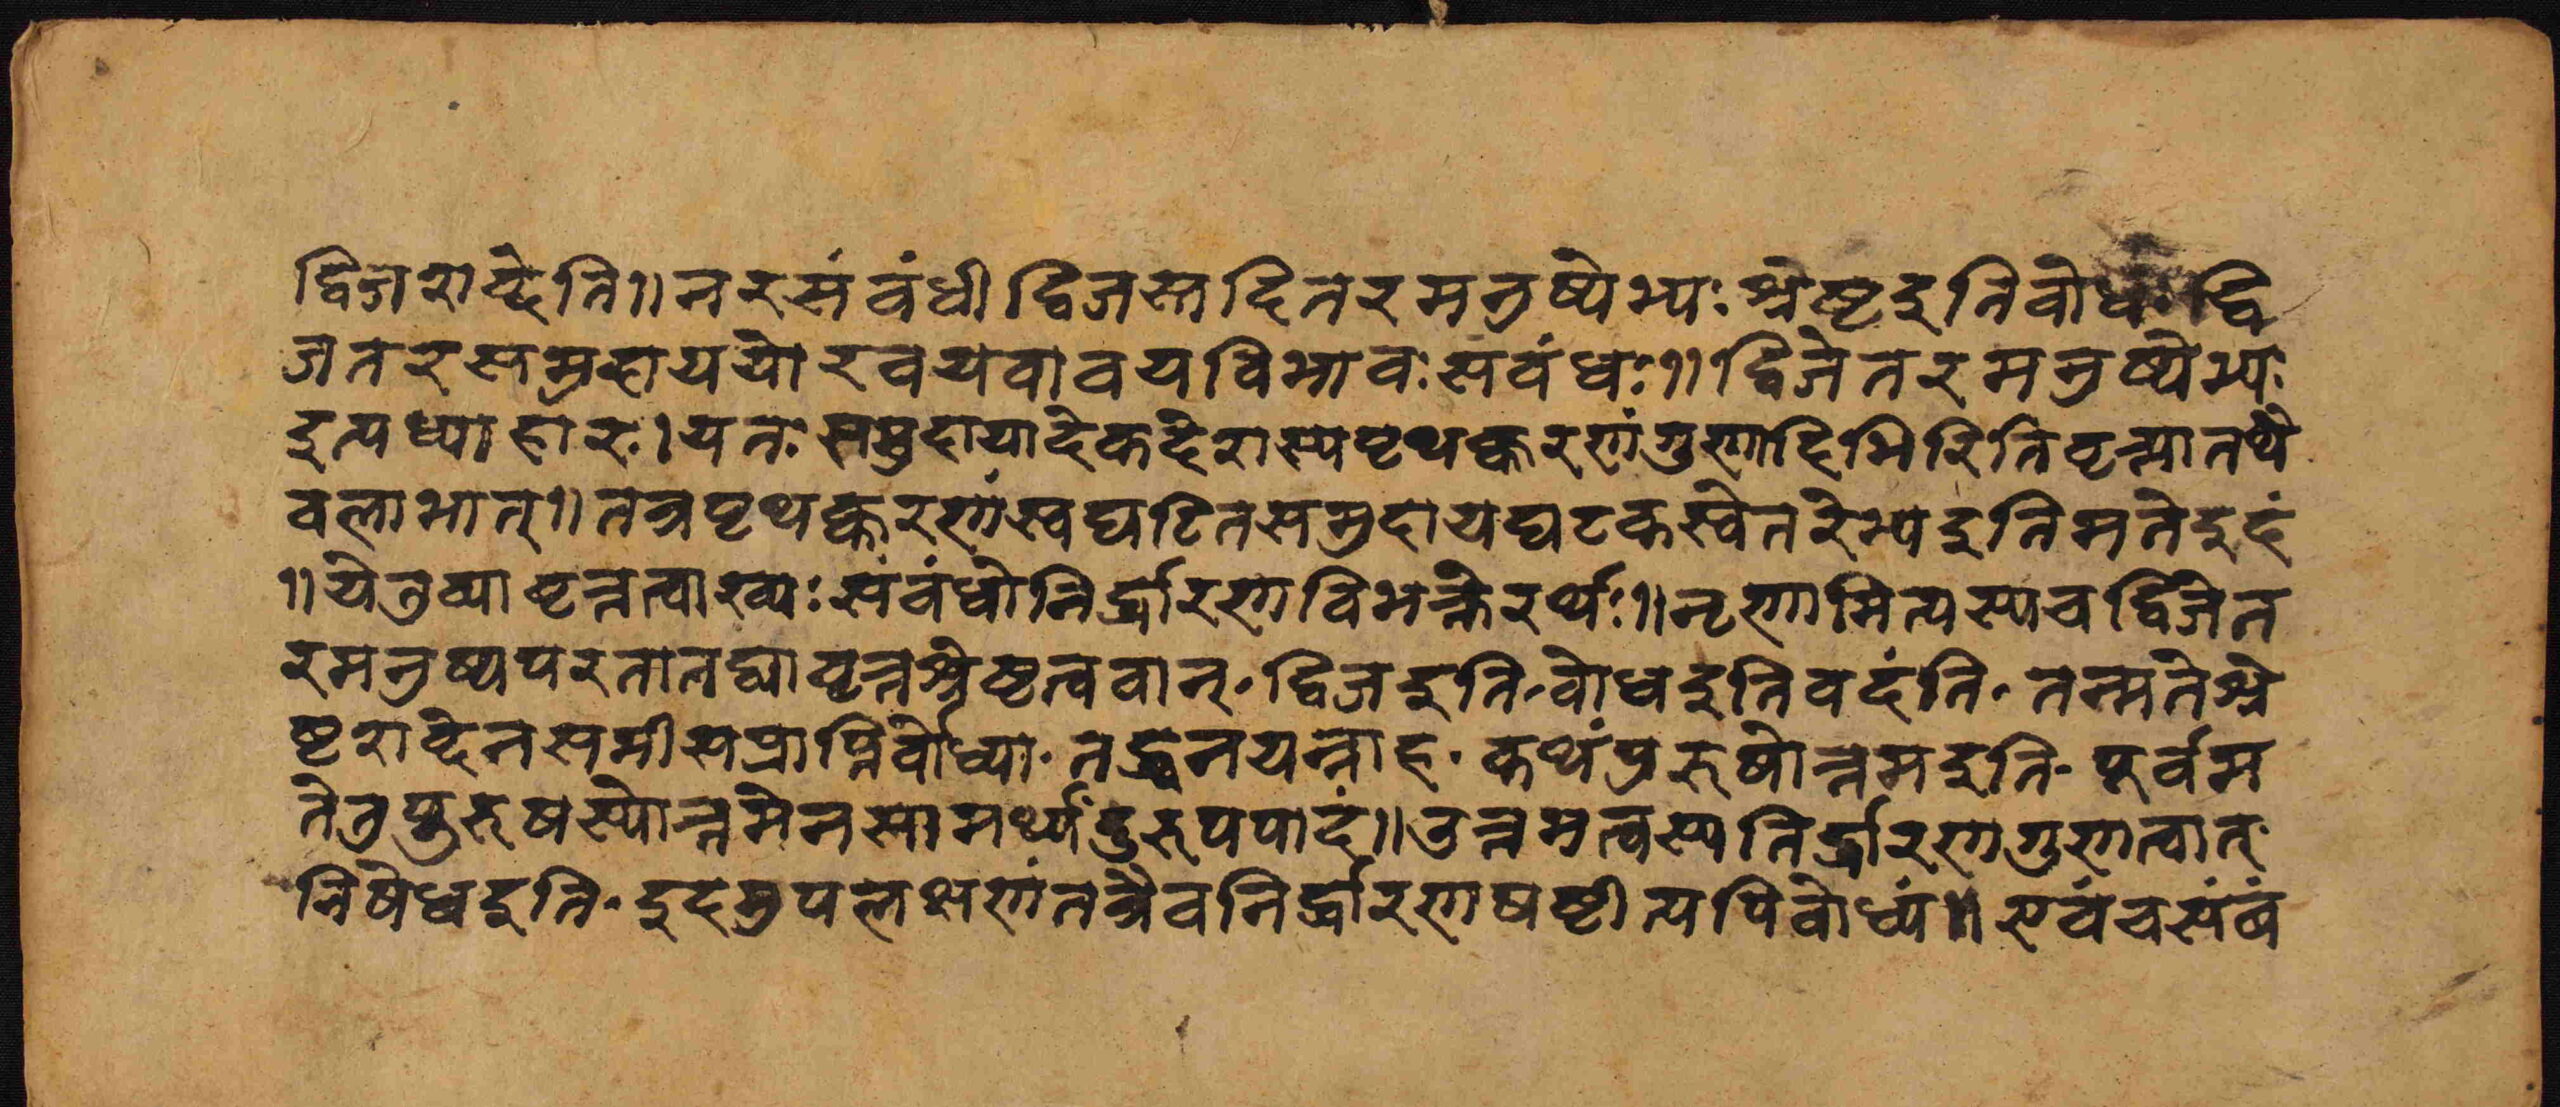 द्विजशब्देति॥नरसंबंधी द्विजस्तदितरमनुष्येभ्यः श्रेष्ठइतिबोधः द्वि
जनरसमुदाययोरवयवावयविभावः संबंधः॥ द्विजेतरमनुष्येभ्यः
इत्यध्याहारः।यतः समुदायादेकदेशस्यपृथक्करणंगुणादिभिरितिवृत्त्यातथै
वलाभात्॥तत्रपृथक्करणंस्वघटितसमुदायघटकस्वेतरेभ्यइतिमतेइदं
॥येतुव्यावृत्तत्वाख्यः संबंधोनिर्द्धारणविभक्तेरर्थः॥नृणामित्यस्यचद्विजेत
रमनुष्यपरतातद्व्यावृत्तश्रेष्ठत्ववान् द्विजइति बोधइतिवदंति तन्मतेश्रे
ष्ठशब्देनसमासप्राप्तिर्बोध्या तद्ध्वनयन्नाह कथंपुरुषोत्तमइति पूर्वम
तेतुपुरुषस्योत्तमेनसामर्थ्यंदुरुपपादं॥उत्तमत्वस्यनिर्द्धारणगुणत्वात्
निषेधइति इदमुपलक्षणंतत्रैवनिर्द्धारणषष्ठीत्यपिबोध्यं॥ एवंचसंबं